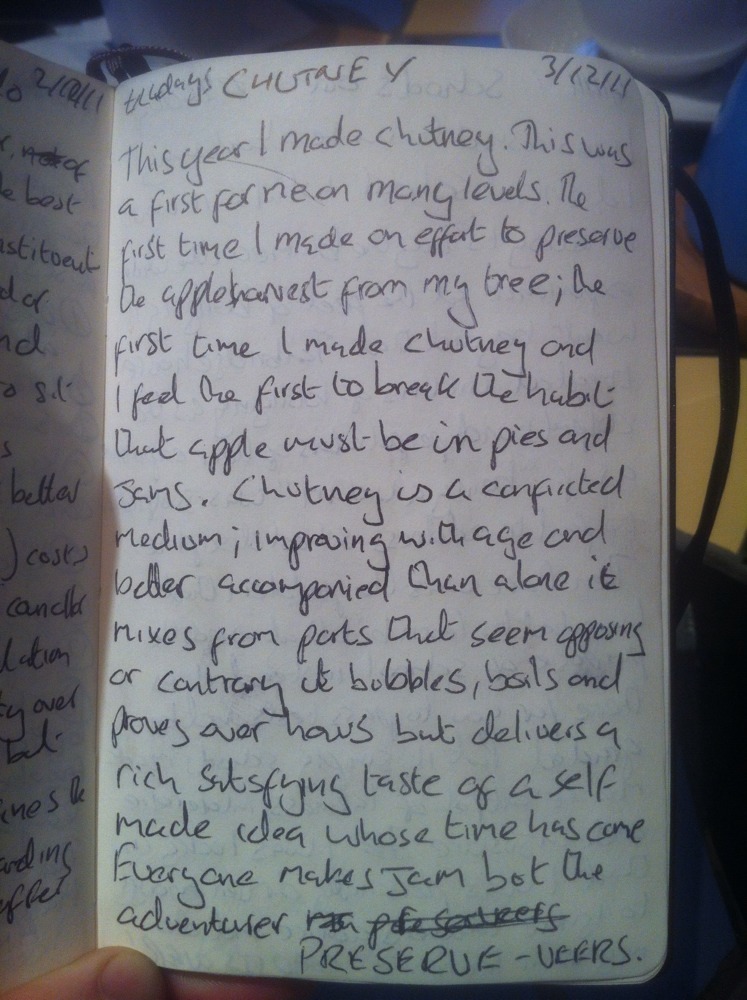 tuesdays CHUTNEY 3/12/11
This year I made chutney. This was
a first for me on many levels. The
first time I made an effort to preserve
the apple harvest from my tree; the
first time I made chutney and
I feel the first to break the habit
that apple must be in pies and
Jams. Chutney is a conflicted
medium; improving with age and
better accompanied than alone it
mixes from parts that seem opposing
or contrary it bubbles, boils and
proves over hours but delivers a
rich satisfying taste of a self
made idea whose time has come
Everyone makes Jam but the
adventurer
PRESERVE-VEERS.
2/12/11
not of
best
nstituent
and
to sit
better
) costs
candle
lation
over
but